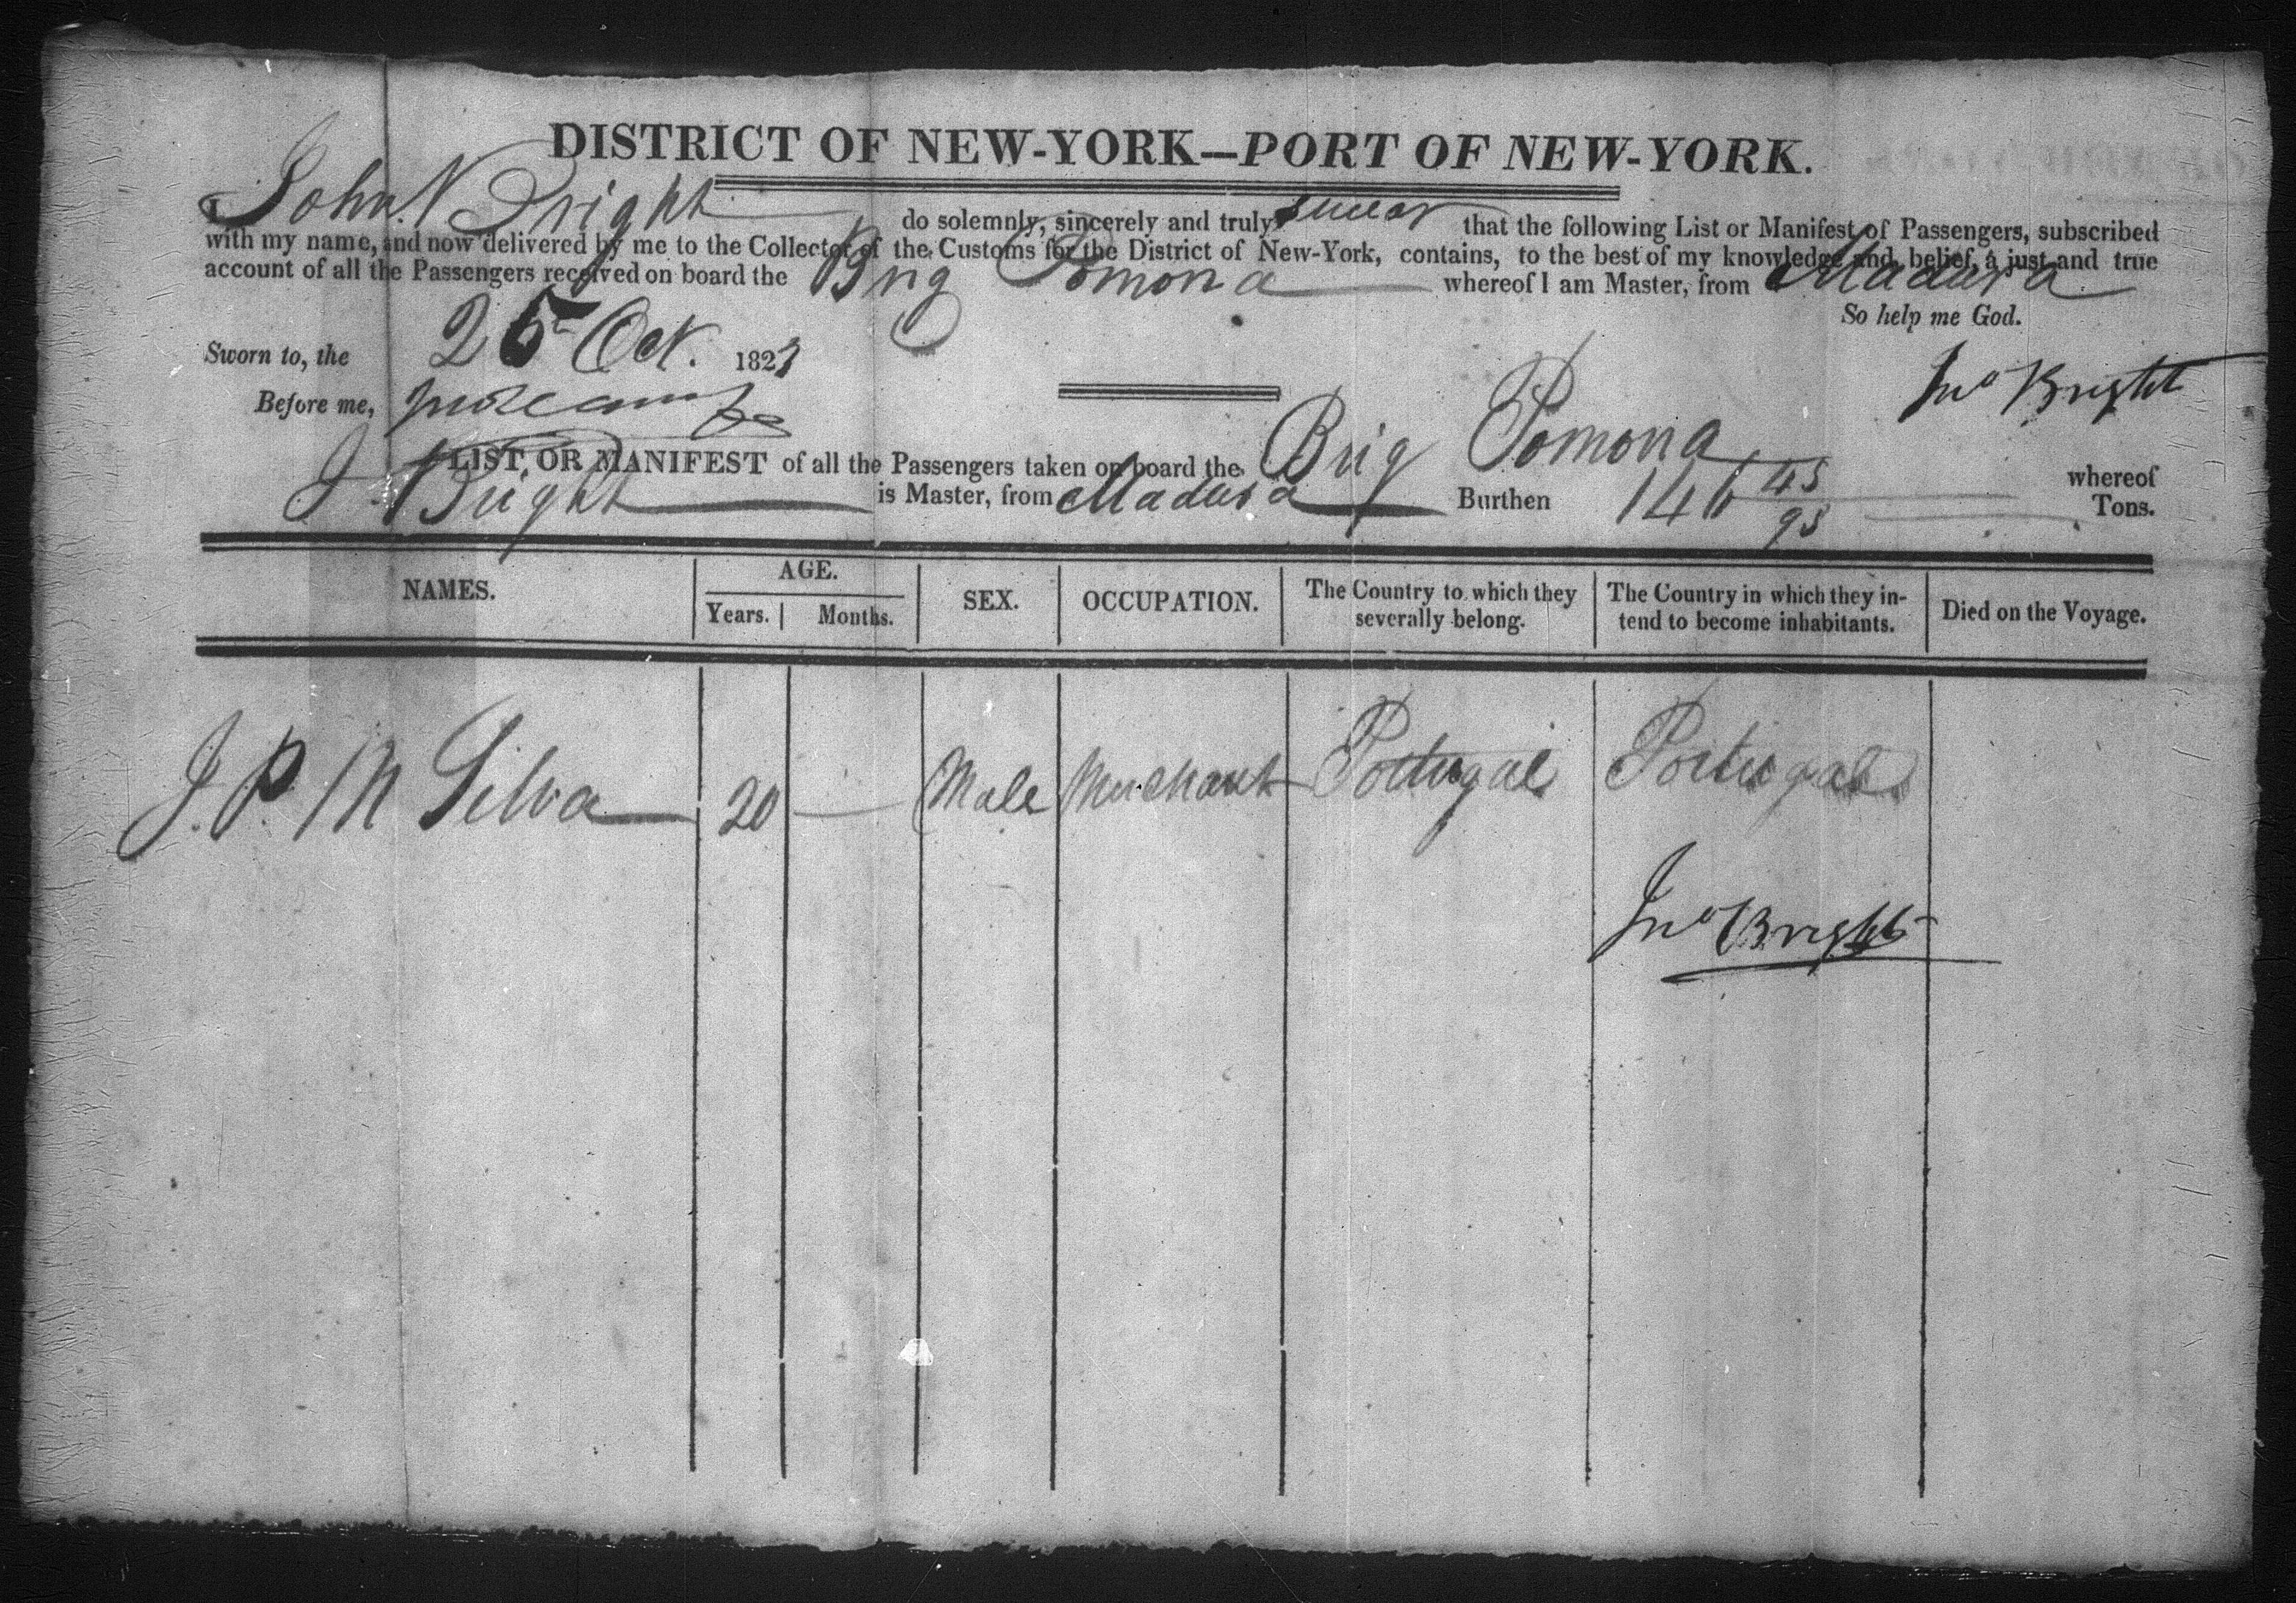 DISTRICT OF NEW-YORK—PORT OF NEW-YORK.
I John Bright do solemnly, sincerely and truly swear that the following List or Manifest of Passengers, subscribed
with my name, and now delivered by me to the Collector of the Customs for the District of New-York, contains, to the best of my knowledge and belief, a just and true
account of all the Passengers received on board the Brig Pomona whereof I am Master, from Madura
So help me God.
Sworn to, the 25 Oct. 1827
Jno Bright
Before me,
LIST, OR MANIFEST of all the Passengers taken on board the Brig Pomona whereof
J Bright is Master, from Madura Burthen 146 45/95 Tons.
NAMES. AGE. SEX. OCCUPATION. The Country to which they severally belong. The Country in which they intend to become inhabitants. Died on the Voyage.
Years. Months.
J. P. M Silva 20 — Male Merchant Portugal Portugal
Jno Bright